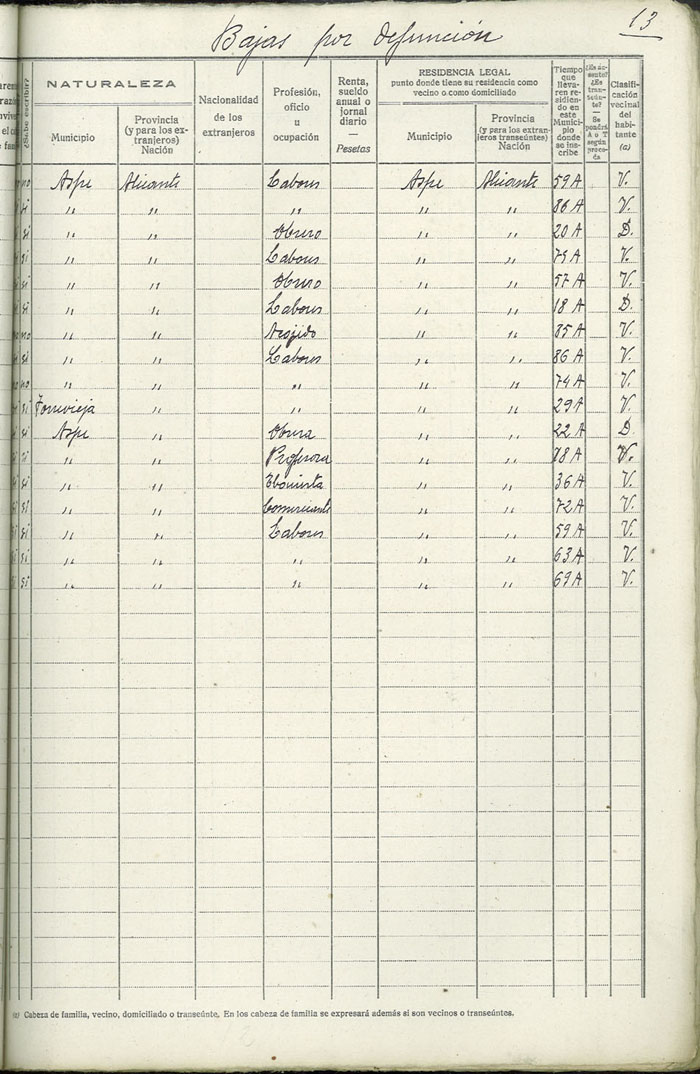 13
Bajas por defunción
¿Sabe escribir?
NATURALEZA
Municipio
Provincia (y para los extranjeros) Nación
Nacionalidad de los extranjeros
Profesión, oficio u ocupación
Renta, sueldo anual o jornal diario — Pesetas
RESIDENCIA LEGAL
punto donde tiene su residencia como vecino o como domiciliado
Municipio
Provincia (y para los extranjeros transeúntes) Nación
Tiempo que llevaren residiendo en este Municipio donde se inscribe
Clasificación vecinal del habitante (a)
no Aspe Alicante Labores Aspe Alicante 59 A V.
si " " " " " 86 A V.
si " " Obrero " " 20 A D.
si " " Labores " " 75 A V.
si " " Obrero " " 57 A V.
si " " Labores " " 18 A D.
no " " Acojido " " 85 A V.
si " " Labores " " 86 A V.
no " " " " " 74 A V.
si Torrevieja " " " " 29 A V.
si Aspe " Obrera " " 22 A D.
si " " Profesora " " 78 A V.
si " " Ebanista " " 36 A V.
si " " Comerciante " " 72 A V.
si " " Labores " " 59 A V.
si " " " " " 63 A V.
si " " " " " 69 A V.
(a) Cabeza de familia, vecino, domiciliado o transeúnte. En los cabeza de familia se expresará además si son vecinos o transeúntes.